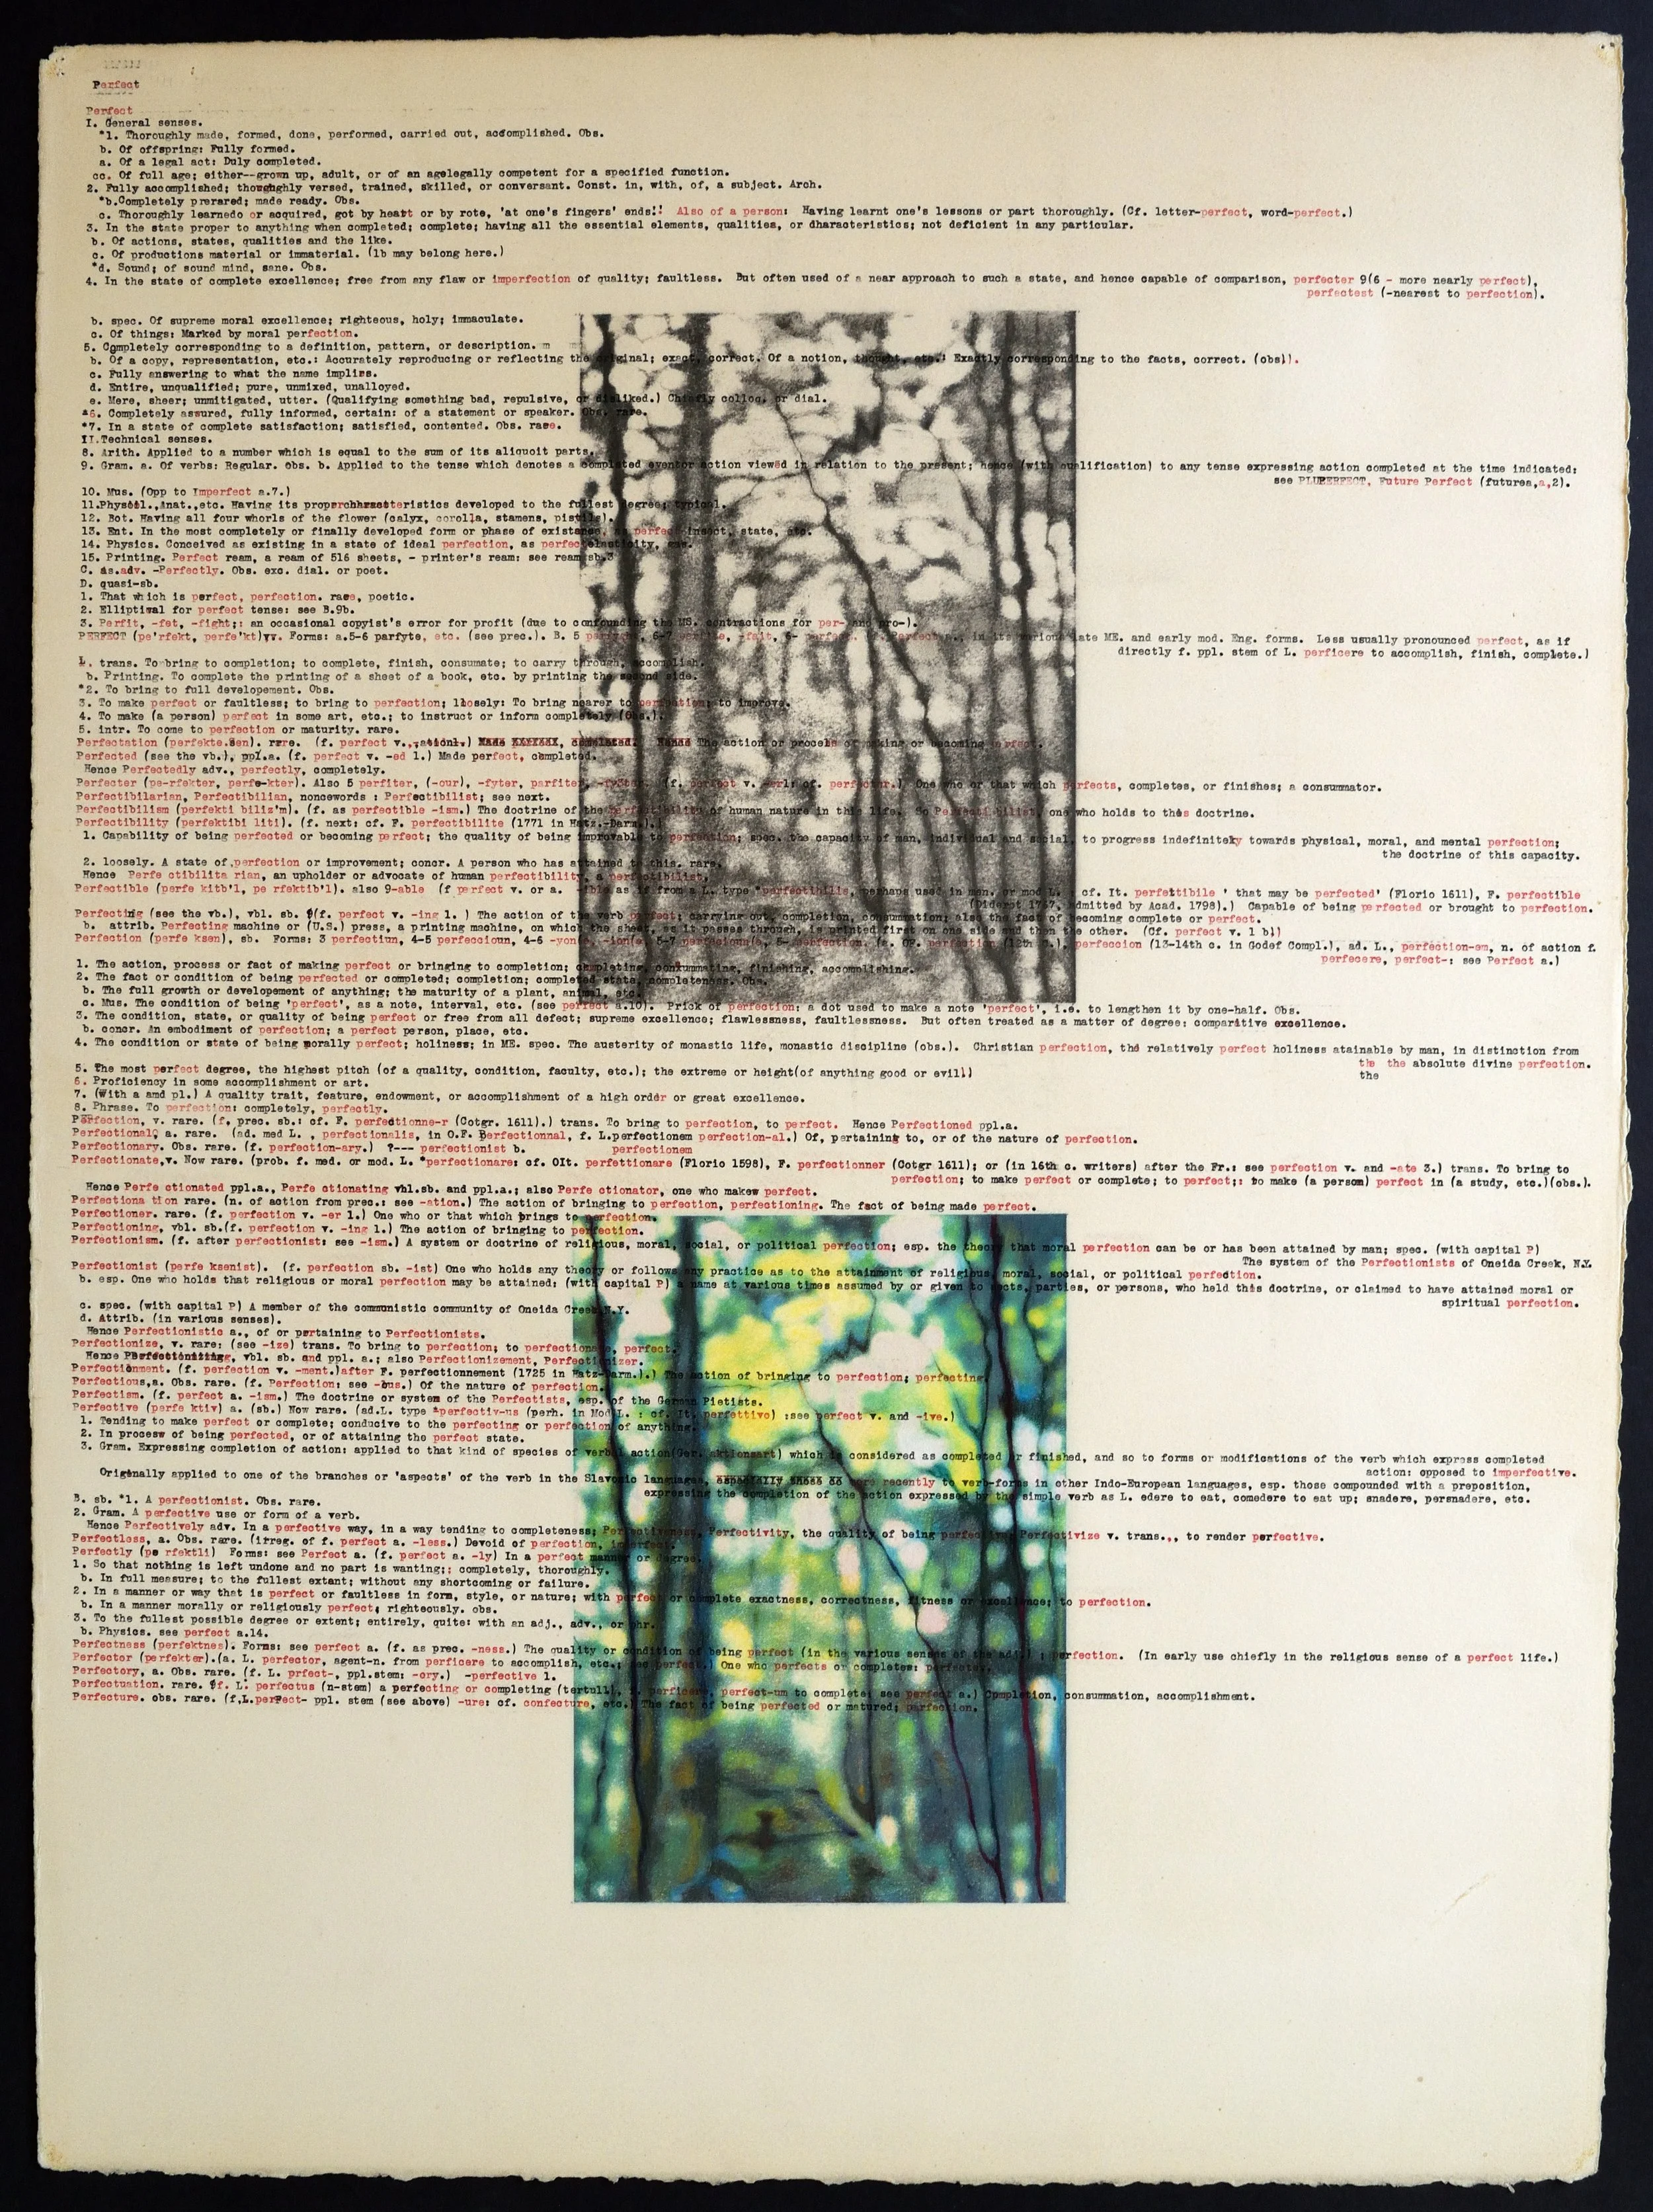 Perfect
Perfect
I. General senses.
*1. Thoroughly made, formed, done, performed, carried out, accomplished. Obs.
b. Of offspring: Fully formed.
a. Of a legal act: Duly completed.
cc. Of full age; either--grown up, adult, or of an agelegally competent for a specified function.
2. Fully accomplished; thoughghly versed, trained, skilled, or conversant. Const. in, with, of, a subject. Arch.
*b.Completely prerared; made ready. Obs.
c. Thoroughly learnedo or acquired, got by heart or by rote, 'at one's fingers' ends!! Also of a person: Having learnt one's lessons or part thoroughly. (Cf. letter-perfect, word-perfect.)
3. In the state proper to anything when completed; complete; having all the essential elements, qualities, or dharacteristics; not deficient in any particular.
b. Of actions, states, qualities and the like.
c. Of productions material or immaterial. (lb may belong here.)
*d. Sound; of sound mind, sane. Obs.
4. In the state of complete excellence; free from any flaw or imperfection of quality; faultless. But often used of a near approach to such a state, and hence capable of comparison, perfecter 9(6 - more nearly perfect),
perfectest (-nearest to perfection).
b. spec. Of supreme moral excellence; righteous, holy; immaculate.
c. Of things: Marked by moral perfection.
5. Completely corresponding to a definition, pattern, or description. m
b. Of a copy, representation, etc.: Accurately reproducing or reflecting the original; exact, correct. Of a notion, thought, etc.: Exactly corresponding to the facts, correct. (obs)).
c. Fully answering to what the name implies.
d. Entire, unqualified; pure, unmixed, unalloyed.
e. Mere, sheer; unmitigated, utter. (Qualifying something bad, repulsive, or disliked.) Chiefly colloq. or dial.
*6. Completely assured, fully informed, certain: of a statement or speaker. Obs. rare.
*7. In a state of complete satisfaction; satisfied, contented. Obs. rare.
II.Technical senses.
8. Arith. Applied to a number which is equal to the sum of its aliquoit parts.
9. Gram. a. Of verbs: Regular. obs. b. Applied to the tense which denotes a completed eventor action viewed in relation to the present; hence (with qualification) to any tense expressing action completed at the time indicated:
see PLUPERFECT, Future Perfect (futurea,a,2).
10. Mus. (Opp to Imperfect a.7.)
11.Physiol.,Anat.,etc. Having its characteristics developed to the fullest degree; typical.
12. Bot. Having all four whorls of the flower (calyx, corolla, stamens, pistils).
13. Ent. In the most completely or finally developed form or phase of existance, as perfect insect, state, etc.
14. Physics. Conceived as existing in a state of ideal perfection, as perfect elasticity, gas.
15. Printing. Perfect ream, a ream of 516 sheets, - printer's ream: see ream sb.3
C. as.adv. -Perfectly. Obs. exc. dial. or poet.
D. quasi-sb.
1. That which is perfect, perfection. rare, poetic.
2. Elliptical for perfect tense: see B.9b.
3. Perfit, -fet, -fight;: an occasional copyist's error for profit (due to confounding the MS. contractions for per- and pro-).
PERFECT (pe'rfekt, perfe'kt)vv. Forms: a.5-6 parfyte, etc. (see prec.). B. 5 6-7 -fait, 6- perfect. in its various late ME. and early mod. Eng. forms. Less usually pronounced perfect, as if
directly f. ppl. stem of L. perficere to accomplish, finish, complete.)
1. trans. To bring to completion; to complete, finish, consumate; to carry through, accomplish.
b. Printing. To complete the printing of a sheet of a book, etc. by printing the second side.
*2. To bring to full developement. Obs.
3. To make perfect or faultless; to bring to perfection; lloosely: To bring nearer to perfection; to improve.
4. To make (a person) perfect in some art, etc.; to instruct or inform completely (Obs.).
5. intr. To come to perfection or maturity. rare.
Perfectation (perfekte.Sen). rare. (f. perfect v., The action or process of making or becoming perfect.
Perfected (see the vb.), ppl.a. (f. perfect v. -ed 1.) Made perfect, completed.
Hence Perfectedly adv., perfectly, completely.
Perfecter (pe-rfekter, perfe-kter). Also 5 perfiter, (-our), -fyter, parfiter, (f. perfect v. cf. perfector.) One who or that which perfects, completes, or finishes; a consummator.
Perfectibilarian, Perfectibilian, noncewords : Perfectibilist; see next.
Perfectibilism (perfekti biliz'm). (f. as perfectible -ism.) The doctrine of the perfectibility of human nature in this life. So Perfectibilist, one who holds to thes doctrine.
Perfectibility (perfektibi liti). (f. next: cf. F. perfectibilite (1771 in Hatz.-Darm.).
1. Capability of being perfected or becoming perfect; the quality of being improvable to perfection; spec. the capacity of man, individual and social, to progress indefinitely towards physical, moral, and mental perfection;
the doctrine of this capacity.
2. loosely. A state of perfection or improvement; concr. A person who has attained to this. rare.
Hence Perfe ctibilita rian, an upholder or advocate of human perfectibility, a perfectibilist.
Perfectible (perfe kitb'l, pe rfektib'l). also 9-able (f perfect v. or a. -ible as if from a L. type *perfectibilis, perhaps used in men. or mod L. : cf. It. perfettibile ' that may be perfected' (Florio 1611), F. perfectible
(Diderot 1767, admitted by Acad. 1798).) Capable of being perfected or brought to perfection.
Perfecting (see the vb.), vbl. sb. (f. perfect v. -ing 1. ) The action of the verb perfect; carrying out, completion, consummation; also the fact of becoming complete or perfect.
b. attrib. Perfecting machine or (U.S.) press, a printing machine, on which the sheet, as it passes through, is printed first on one side and then the other. (Cf. perfect v. 1 b))
Perfection (perfe ksen), sb. Forms: 3 perfectiun, 4-5 perfeccioun, 4-6 -yon (12th c.), perfeccion (13-14th c. in Godef Compl.), ad. L., perfection-em, n. of action f.
perfecere, perfect-: see Perfect a.)
1. The action, process or fact of making perfect or bringing to completion; completing, consummating, finishing, accomplishing.
2. The fact or condition of being perfected or completed; completion; completed state, completeness. Obs.
b. The full growth or developement of anything; the maturity of a plant, animal, etc.
c. Mus. The condition of being 'perfect', as a note, interval, etc. (see perfect a.10). Prick of perfection: a dot used to make a note 'perfect', i.e. to lengthen it by one-half. Obs.
3. The condition, state, or quality of being perfect or free from all defect; supreme excellence; flawlessness, faultlessness. But often treated as a matter of degree: comparitive excellence.
b. concr. An embodiment of perfection; a perfect person, place, etc.
4. The condition or state of being morally perfect; holiness; in ME. spec. The austerity of monastic life, monastic discipline (obs.). Christian perfection, the relatively perfect holiness atainable by man, in distinction from
the the absolute divine perfection.
5. The most perfect degree, the highest pitch (of a quality, condition, faculty, etc.); the extreme or height(of anything good or evil))
the
6. Proficiency in some accomplishment or art.
7. (With a amd pl.) A quality trait, feature, endowment, or accomplishment of a high order or great excellence.
8. Phrase. To perfection: completely, perfectly.
Perfection, v. rare. (f. prec. sb.: cf. F. perfectionne-r (Cotgr. 1611).) trans. To bring to perfection, to perfect. Hence Perfectioned ppl.a.
Perfectional, a. rare. (ad. med L. , perfectionalis, in O.F. Perfectionnal, f. L.perfectionem perfection-al.) Of, pertaining to, or of the nature of perfection.
Perfectionary. Obs. rare. (f. perfection-ary.) ?--- perfectionist b. perfectionem
Perfectionate,v. Now rare. (prob. f. med. or mod. L. *perfectionare: cf. OIt. perfettionare (Florio 1598), F. perfectionner (Cotgr 1611); or (in 16th c. writers) after the Fr.: see perfection v. and -ate 3.) trans. To bring to
perfection; to make perfect or complete; to perfect;: to make (a person) perfect in (a study, etc.)(obs.).
Hence Perfe ctionated ppl.a., Perfe ctionating vbl.sb. and ppl.a.; also Perfe ctionator, one who makew perfect.
Perfectiona tion rare. (n. of action from prec.: see -ation.) The action of bringing to perfection, perfectioning. The fact of being made perfect.
Perfectioner. rare. (f. perfection v. -er 1.) One who or that which brings to perfection.
Perfectioning, vbl. sb.(f. perfection v. -ing 1.) The action of bringing to perfection.
Perfectionism. (f. after perfectionist: see -ism.) A system or doctrine of religious, moral, social, or political perfection; esp. the theory that moral perfection can be or has been attained by man; spec. (with capital P)
The system of the Perfectionists of Oneida Creek, N.Y.
Perfectionist (perfe ksenist). (f. perfection sb. -ist) One who holds any theory or follows any practice as to the attainment of religious, moral, social, or political perfection.
b. esp. One who holds that religious or moral perfection may be attained: (with capital P) a name at various times assumed by or given to sects, parties, or persons, who held this doctrine, or claimed to have attained moral or
spiritual perfection.
c. spec. (with capital P) A member of the communistic community of Oneida Creek N.Y.
d. Attrib. (in various senses).
Hence Perfectionistic a., of or pertaining to Perfectionists.
Perfectionize, v. rare: (see -ize) trans. To bring to perfection; to perfectionate, perfect.
Hence Perfectionizing, vbl. sb. and ppl. a.; also Perfectionizement, Perfectionizer.
Perfectionment. (f. perfection v. -ment.)after F. perfectionnement (1725 in Hatz-Darm.).) The action of bringing to perfection; perfecting.
Perfectious,a. Obs. rare. (f. Perfection: see -ous.) Of the nature of perfection.
Perfectism. (f. perfect a. -ism.) The doctrine or system of the Perfectists, esp. of the German Pietists.
Perfective (perfe ktiv) a. (sb.) Now rare. (ad.L. type *perfectiv-us (perh. in Mod L. : cf. It. perfettivo) :see perfect v. and -ive.)
1. Tending to make perfect or complete; conducive to the perfecting or perfection of anything.
2. In procesw of being perfected, or of attaining the perfect state.
3. Gram. Expressing completion of action: applied to that kind of species of verbal action(Ger. aktionsart) which is considered as completed or finished, and so to forms or modifications of the verb which express completed
action: opposed to imperfective.
Originally applied to one of the branches or 'aspects' of the verb in the Slavonic languages, more recently to verb-forms in other Indo-European languages, esp. those compounded with a preposition,
expressing the completion of the action expressed by the simple verb as L. edere to eat, comedere to eat up; snadere, persnadere, etc.
B. sb. *1. A perfectionist. Obs. rare.
2. Gram. A perfective use or form of a verb.
Hence Perfectively adv. In a perfective way, in a way tending to completeness; Perfectiveness, Perfectivity, the quality of being perfective; Perfectivize v. trans.,, to render perfective.
Perfectless, a. Obs. rare. (irreg. of f. perfect a. -less.) Devoid of perfection, imperfect.
Perfectly (pe rfektli) Forms: see Perfect a. (f. perfect a. -ly) In a perfect manner or degree.
1. So that nothing is left undone and no part is wanting;: completely, thoroughly.
b. In full measure; to the fullest extant; without any shortcoming or failure.
2. In a manner or way that is perfect or faultless in form, style, or nature; with perfect or complete exactness, correctness, fitness or excellence; to perfection.
b. In a manner morally or religiously perfect, righteously. obs.
3. To the fullest possible degree or extent; entirely, quite: with an adj., adv., or phr.
b. Physics. see perfect a.14.
Perfectness (perfektnes). Forms: see perfect a. (f. as prec. -ness.) The quality or condition of being perfect (in the various senses of the adj.) ; perfection. (In early use chiefly in the religious sense of a perfect life.)
Perfector (perfekter).(a. L. perfector, agent-n. from perficere to accomplish, etc.; see perfect.) One who perfects or completes: perfecter.
Perfectory, a. Obs. rare. (f. L. prfect-, ppl.stem: -ory.) -perfective 1.
Perfectuation. rare. (f. L. perfectus (n-stem) a perfecting or completing (tertull), f. perficere, perfect-um to complete: see perfect a.) Completion, consummation, accomplishment.
Perfecture. obs. rare. (f,L.perfect- ppl. stem (see above) -ure: cf. confecture, etc.) The fact of being perfected or matured; perfection.